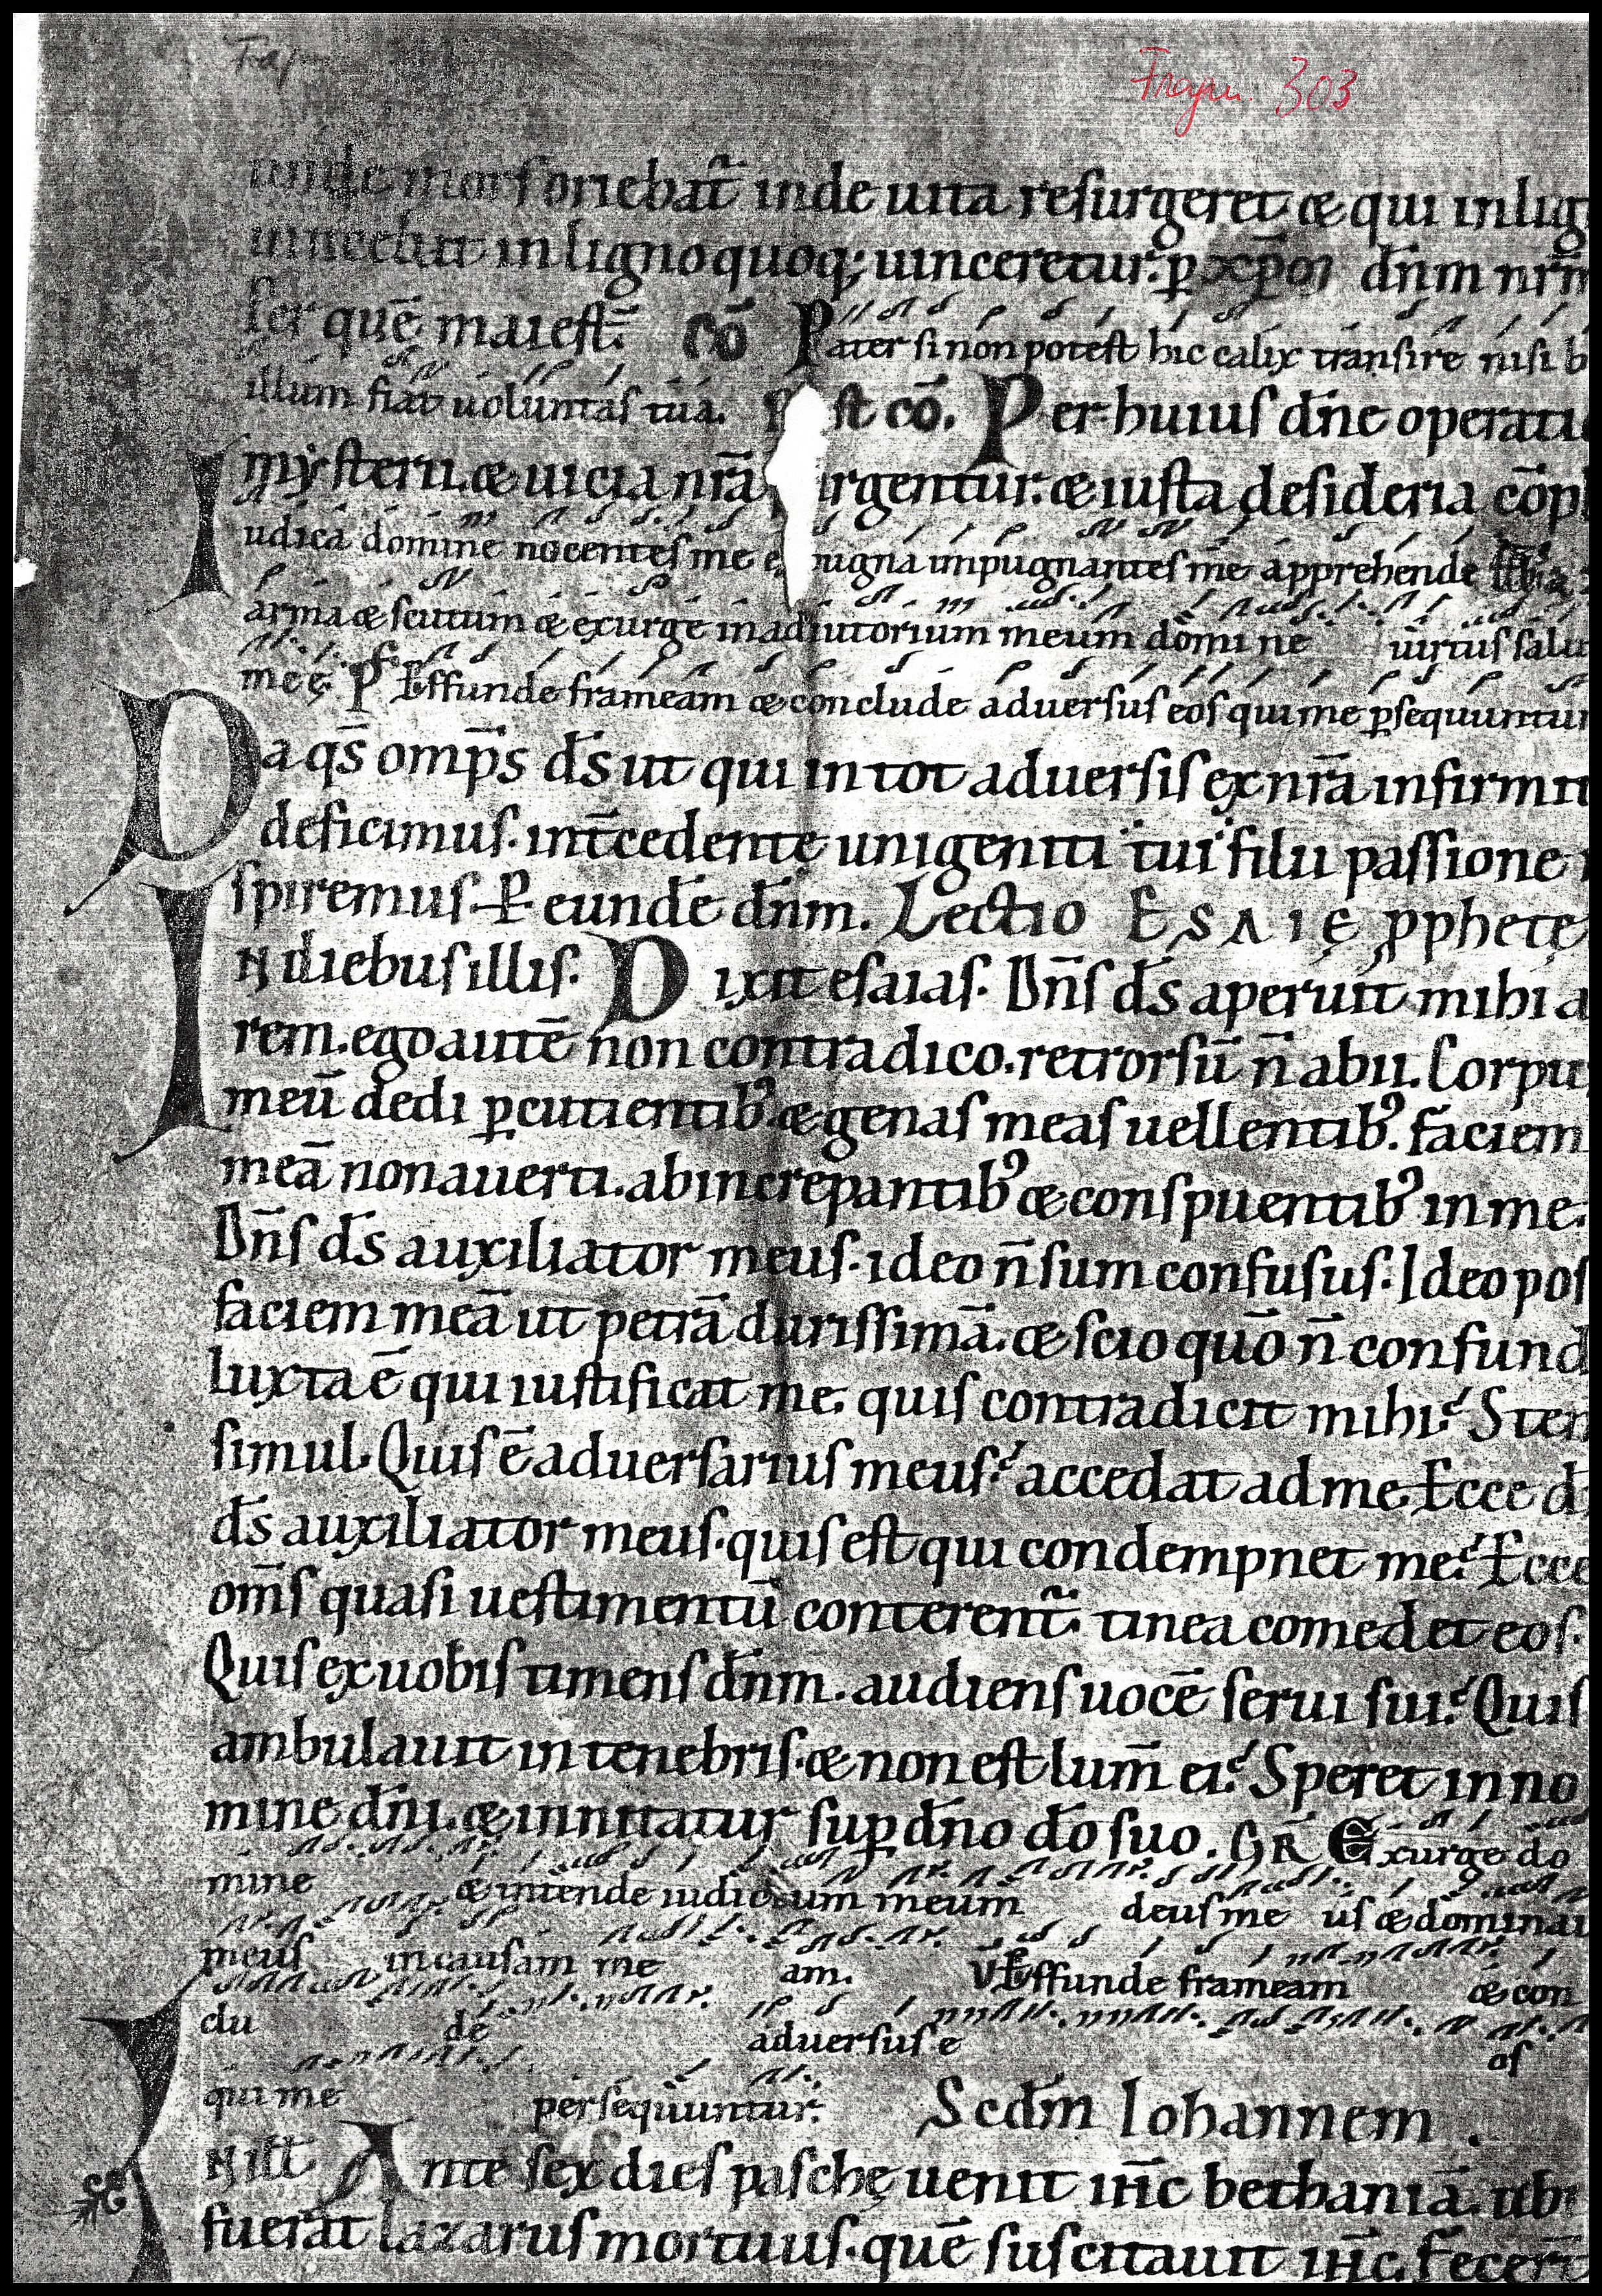 Fragm. 303
unde mors oriebat̃ inde uita resurgeret & qui in lig
uincebat in ligno quoq; uinceretur. p̱ xp̄m dn̄m nr̄m
Per quē maiest̄. Cō Pater si non potest hic calix transire nisi b
illum fiat uoluntas tua. P st cō. Per huius dn̄e operati
mysterii. & uicia nr̄a urgentur. & iusta desideria cōpl
Iudica domine nocentes me e pugna impugnantes me apprehende
arma & scutum & exurge in adiutorium meum domi ne uirtus salu
meę P Effunde frameam & conclude aduersus eos qui me p̱sequuntur
Da qs̄ omp̄s ds̄ ut qui in tot aduersis ex nr̄a infirmit
deficimus. int̄cedente unigeniti tui filii passione
spiremus. P̱ eundē dn̄m. Lectio ESAIĘ pphetę
IN diebus illis. Dixit esaias. Dn̄s ds̄ aperuit mihi a
rem. ego autē non contradico. retrorsū n̄ abii. Corpu
meū dedi p̱cutientib; & genas meas uellentib;. faciem
meā non auerti. ab increpantib; & conspuentib; in me.
Dn̄s ds̄ auxiliator meus. ideo n̄ sum confusus. Ideo pos
faciem meā ut petrā durissimā. & scio quō n̄ confund
Iuxta ē qui iustificat me. quis contradicit mihi? Sten
simul. Quis ē aduersarius meus? accedat ad me. Ecce d
ds̄ auxiliator meus. quis est qui condempnet me? Ecce
om̄s quasi uestimentū conterent̃. tinea comedet eos.
Quis ex uobis timens dn̄m. audiens uocē serui sui? Quis
ambulauit in tenebris. & non est lum̄ ei? Speret in no
mine dn̄i. & innitatur sup̱ dn̄o dō suo. GR̄ Exurge do
mine & intende iudicium meum deus me us & dominu
meus in causam me am. V Effunde frameam & con
clu de aduersus e os
qui me persequuntur. Scdm̄ Iohannem.
IN illt Ante sex dies paschę uenit ih̄c bethaniā. ubi
fuerat lazarus mortuus. quē suscitauit ih̄c. Fecer̄